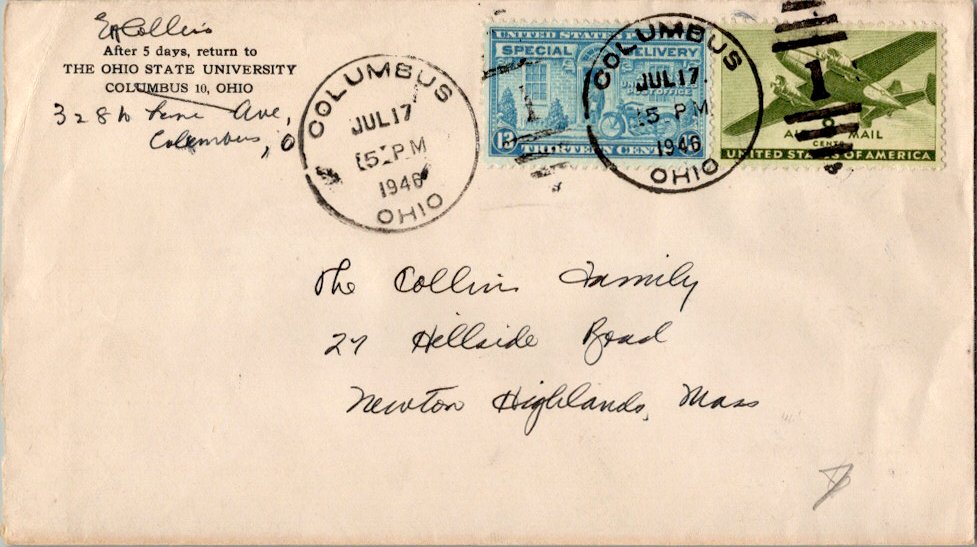 EA Collins
After 5 days, return to
THE OHIO STATE UNIVERSITY
COLUMBUS 10, OHIO
328 W Lane Ave,
Columbus, O
COLUMBUS
JUL 17
5 PM
1946
OHIO
UNITED STATES
SPECIAL DELIVERY
UNITED STATES
POST OFFICE
13
THIRTEEN CENTS
COLUMBUS
JUL 17
5 PM
1946
OHIO
1
1
8
AIR MAIL
CENTS
UNITED STATES OF AMERICA
The Collins Family
27 Hillside Road
Newton Highlands, Mass